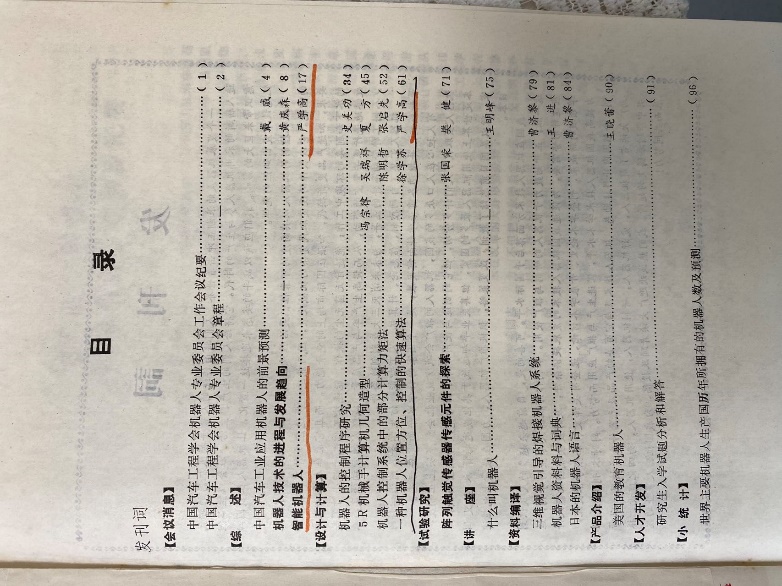 目 录
发刊词
【会议消息】
中国汽车工程学会机器人专业委员会工作会议纪要……（1）
中国汽车工程学会机器人专业委员会章程……（2）
【综 述】
中国汽车工业应用机器人的前景预测……戴 威（4）
机器人技术的进程与发展趋向……黄成森（8）
智能机器人……严学高（17）
【设计与计算】
机器人的控制程序研究……史美功（34）
5R机械手计算机几何造型……冯宗律 吴瑞祥 夏 方（45）
机器人控制系统中的部分计算力矩法……陈明哲 张启先（52）
一种机器人位置方位、控制的快速算法……徐学苏 严学高（61）
【试验研究】
阵列触觉传感器传感元件的探索……张国荣 樊 健（71）
【讲 座】
什么叫机器人……王明峰（75）
【资料编译】
三维视觉引导的焊接机器人系统……曹济黎（79）
机器人资料与词典……王 进（81）
日本的机器人语言……曹济黎（84）
【产品介绍】
美国的教育机器人……王晓蕾（90）
【人才开发】
研究生入学试题分析和解答……（91）
【小 统 计】
世界主要机器人生产国历年所拥有的机器人数及预测……（96）